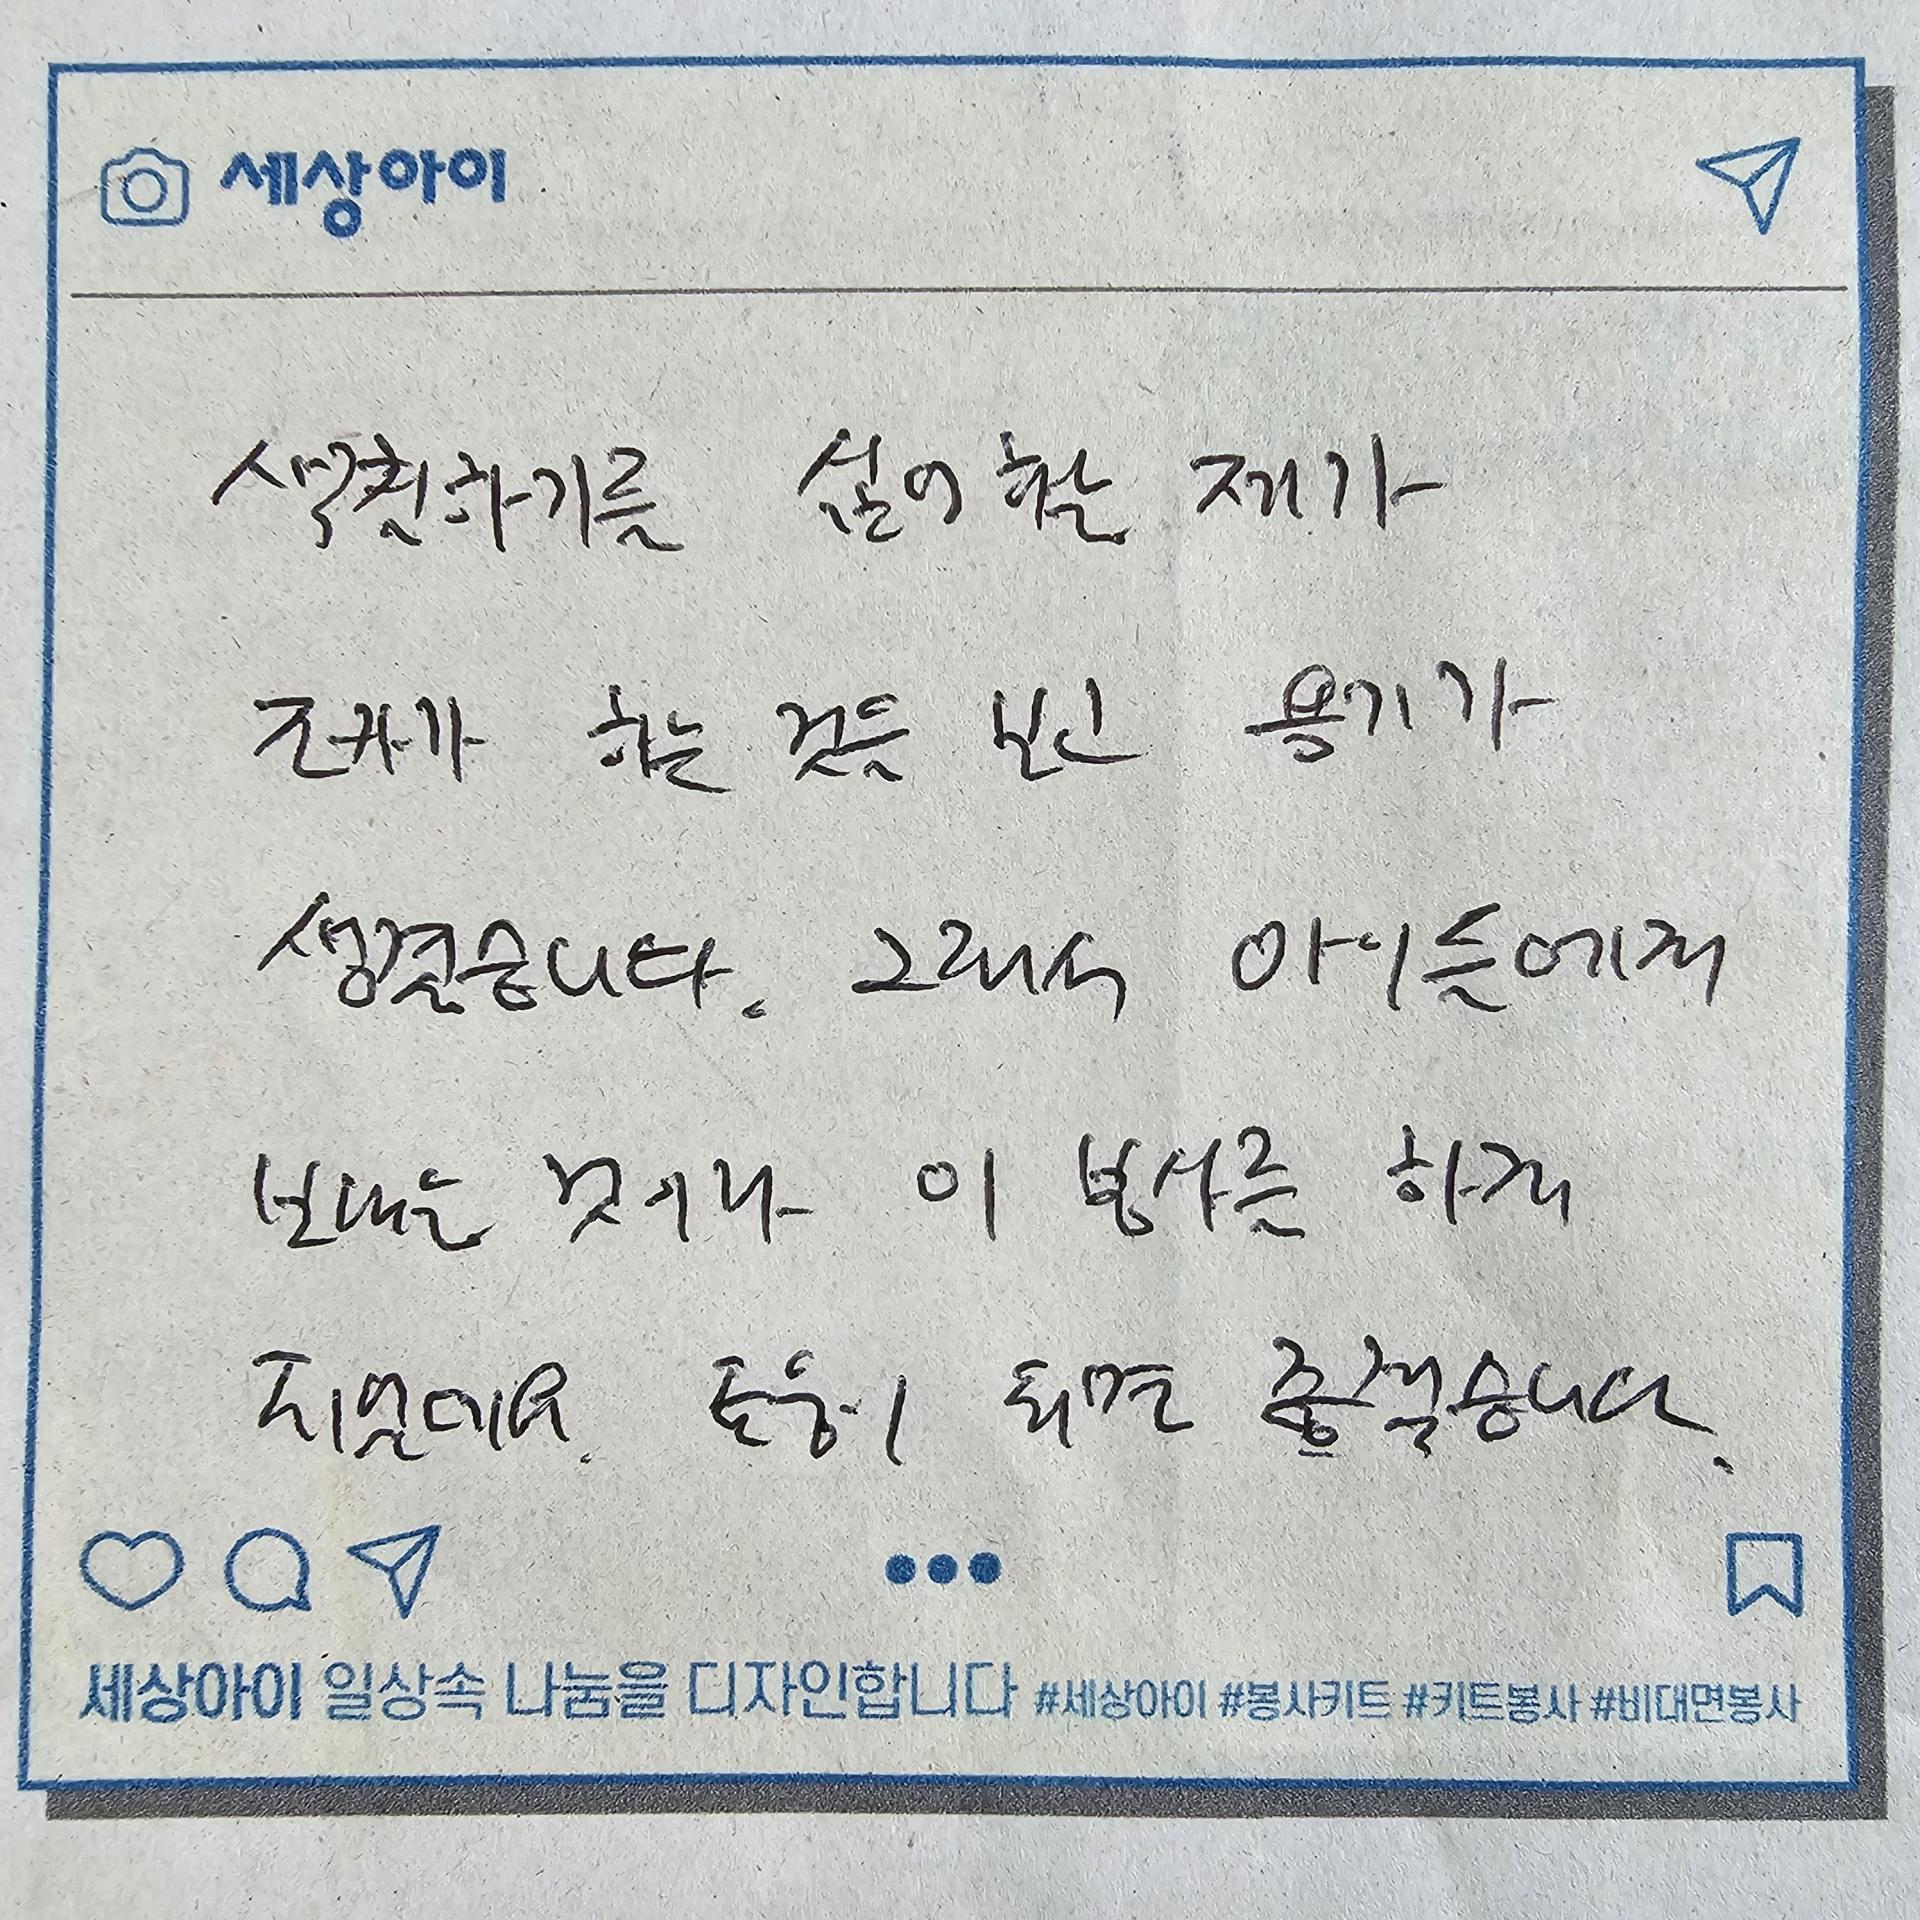 세상아이
색칠하기를 싫어할 제가
조카가 하는 것을 보니 용기가
생겼습니다. 그래서 아이들에게
보내는 것이라 이 봉사를 하게
되었네요. 도움이 되면 좋겠습니다.
세상아이 일상속 나눔을 디자인합니다 #세상아이 #봉사키트 #키트봉사 #비대면봉사